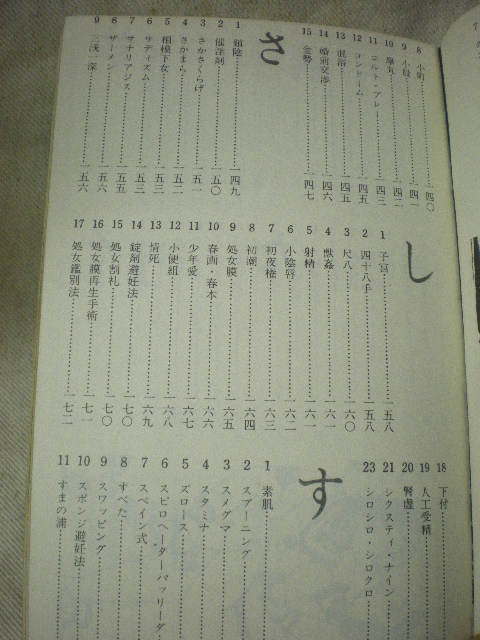 8 小町……一四〇
9 小股……一四一
10 睾丸……一四二
11 コルト・アレー……一四三
12 コンドーム……一四五
13 混浴……一四五
14 婚前交渉……一四六
15 金勢……一四七
さ
1 鎖陰……一四九
2 催淫剤……一五〇
3 さかさくらげ……一五一
4 さかまら……一五二
5 相模下女……一五三
6 サディズム……一五三
7 サチリアジス……一五五
8 ザーメン……一五六
9 三浅一深……一五六
し
1 子宮……一五八
2 四十八手……一五八
3 尺八……一六〇
4 獣姦……一六一
5 射精……一六一
6 小陰唇……一六二
7 初夜権……一六三
8 初潮……一六四
9 処女膜……一六五
10 春画・春本……一六六
11 少年愛……一六七
12 小便組……一六八
13 情死……一六九
14 錠剤避妊法……一七〇
15 処女割礼……一七〇
16 処女膜再生手術……一七一
17 処女鑑別法……一七二
18 下付……
19 人工受精……
20 腎虚……
21 シクスティ・ナイン……
23 シロシロ・シロクロ……
す
1 素肌……
2 スプーニング……
3 スメグマ……
4 スタミナ……
5 ズロース……
6 スピロヘーターパッリーダ
7 スペイン式……
8 すべた……
9 スワッピング……
10 スポンジ避妊法……
11 すまの浦……